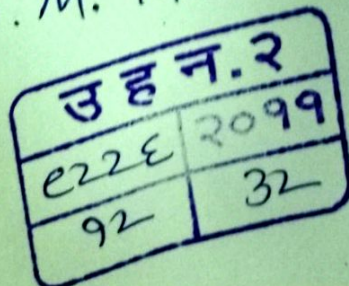 . M.
उ ह न. २
९२२६ २०११
१२ ३२